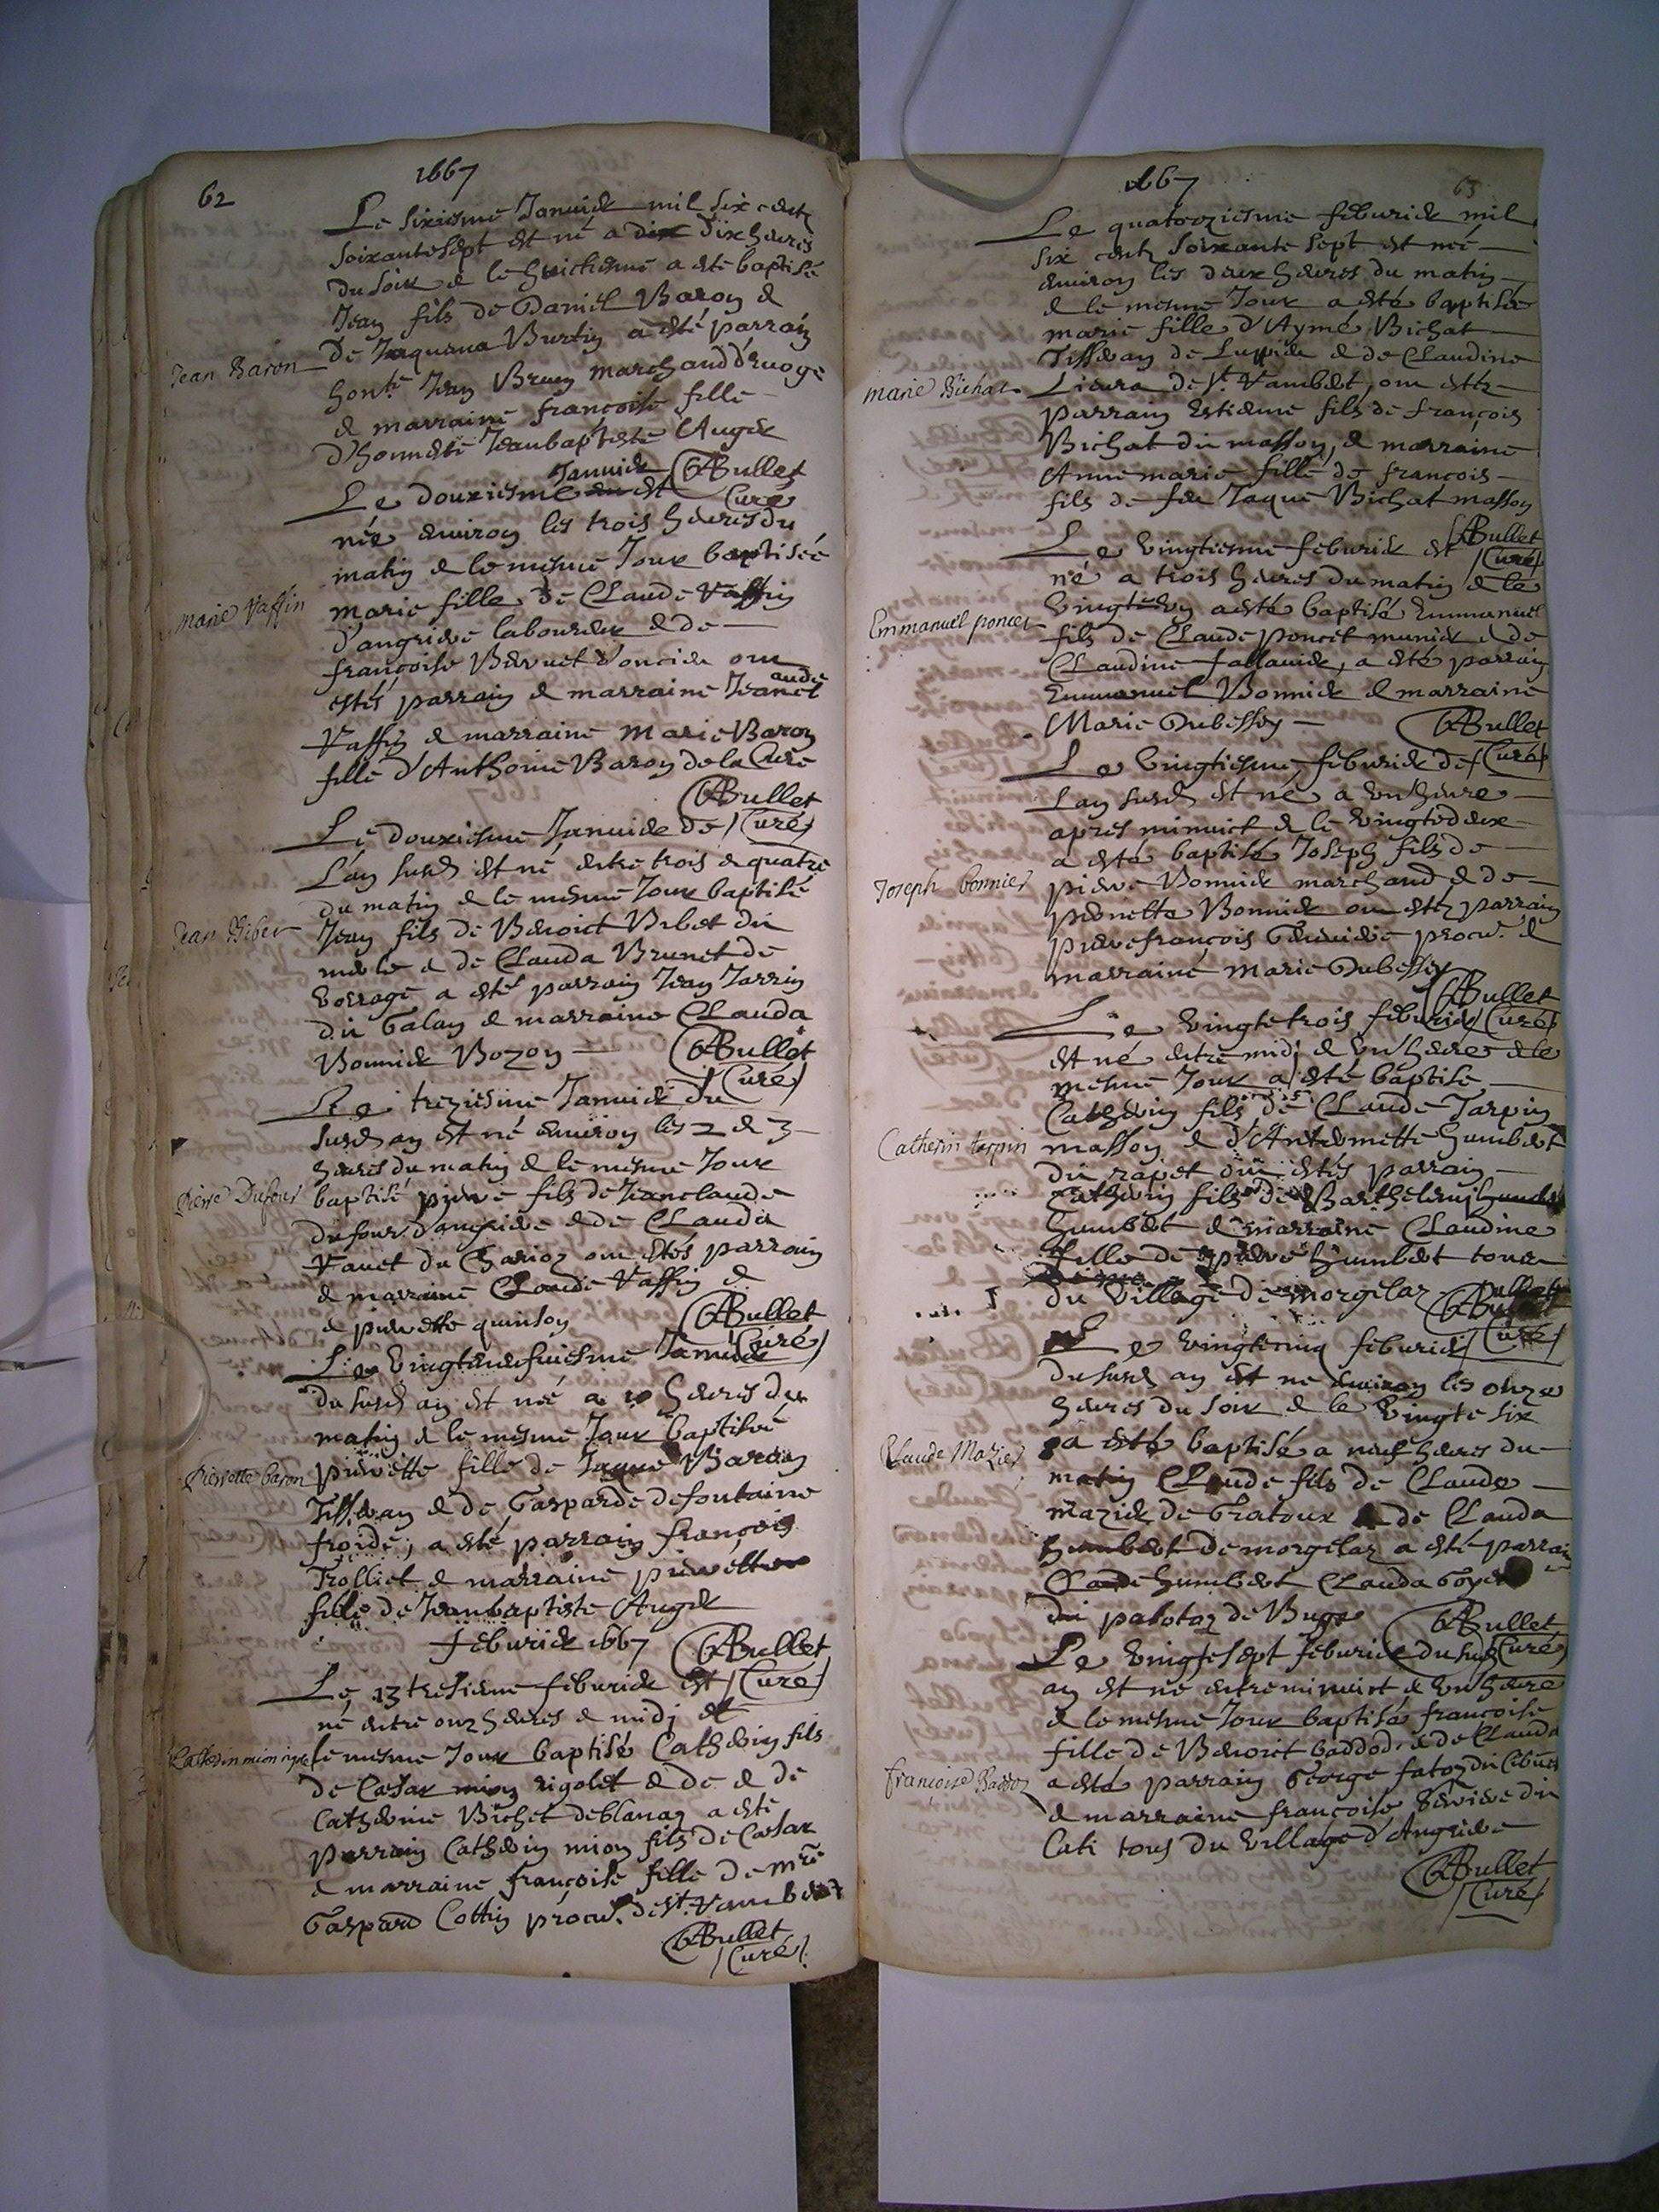 62
1667
Le sixiesme Januier mil six centz
soixantesept est né a dix heures
du soir & le huictiesme a esté baptisé
Jean fils de Daniel Baron &
de Jaquema Burtin a esté parrain
Jean Baron
hon.te Jean Brun marchand d'euoge
& marraine françoise fille
d'honneste Jeanbaptiste Auger
ABullet
Curé
Le douziesme Januier est
née enuiron les trois heures du
matin & le mesme Jour baptisée
marie Vaffin
marie fille de Claude Vaffin
d'angriere laboureur & de
françoise Beruet d'oncieu ont
estés parrain & marraine Jeanclaude
Vaffin & marraine Marie Baron
fille d'Anthoine Baron de la Cure
ABullet
Curé
Le douziesme Januier de
L'an susd est né entre trois & quatre
du matin & le mesme Jour baptisé
Jean Bibet
Jean fils de Benoict Bibet du
& de Clauda Brunet de
a esté parrain Jean Jarrin
du Galan & marraine Clauda
Bonnier Bozon
ABullet
Curé
Le treziesme Januier du
susd an est né enuiron les 2 & 3
heures du matin & le mesme Jour
Pierre Dufour
baptisé pierre fils de Jeanclaude
dufour d'angriere & de Clauda
Vauet du Charioz ont estés parrain
& marraine Claude Vaffin &
& pierrette quinson
ABullet
Curé
Le vingtneufuiesme Januier
du susd an est né a 10 heures du
matin & le mesme Jour baptisée
Pierrette baron
pierrette fille de Jaque Baron
Tisseran & de Gasparde defontaine
froide, a esté parrain françois
Trolliet & marraine pierrette
fille de Jeanbaptiste Auger
feburier 1667
ABullet
Curé
Le 13 tresieme feburier est
né entre onz heures & midj &
Catherin mion rigolet
le mesme Jour baptisé Catherin fils
de Cæsar mion rigolet & de & de
Catherine Bichet deblanaz a esté
parrain Catherin mion fils de Cæsar
& marraine françoise fille de mre
Gaspard Cottin procur. de St. Rambert
ABullet
Curé
1667
63
Le quatorziesme feburier mil
six centz soixante sept est née
enuiron les deux heures du matin
& le mesme Jour a esté baptisée
marie fille d'Aymé Bichat
Tisseran de Luysieu & de Claudine
marie Bichat
Lieura de St. Rambert, ont estez
parrain Estienne fils de françois
Bichat du masson, & marraine
Anne marie fille de françois
fils de feu Jaque Bichat masson
ABullet
Curé
Le vingtiesme feburier est
né a trois heures du matin & le
vingtevn a esté baptisé Emmanuel
Emmanuel poncet
fils de Claude poncet munier & de
Claudine fallauier, a esté parrain
Emmanuel Bonnier & marraine
Marie Dubessey
ABullet
Curé
Le vingtiesme feburier de
Lan susd est né a vn'heure
apres minuict & le vingtedeux
a esté baptisé Joseph fils de
Joseph bonnier
pierre Bonnier marchand & de
pernette Bonnier ont estez parrain
pierrefrançois procur. &
marraine Marie Dubessey
ABullet
Curé
Le vingtetrois feburier
est né entre midj & vn'heure & le
mesme Jour a esté baptisé
Catherin fils de Claude Tarpin
Catherin tarpin
masson & d'Anthoinette humbert
du rapet ont estés parrain
Catherin fils de Barthelemy
humbert & marraine Claudine
fille de pierre humbert tous
du village de morgelaz
ABullet
Curé
Le vingtcinq feburier
du susd an est né enuiron les onze
heures du soir & le vingte six
Claude Mazier
a esté baptisé a neuf heures du
matin Claude fils de Claude
mazier de Gratoux & de Clauda
humbert de morgelaz a esté parrain
Claude humbert Clauda Goyet
du palotaz de Buge
ABullet
Curé
Le vingtesept feburier du susd
an est né entre minuict & vn'heure
& le mesme Jour baptisé françoise
fille de Benoict baddod & de Clauda
françoise Baddoz
a esté parrain George faton du
& marraine françoise du
Cati tous du village d'Angriere
ABullet
Curé